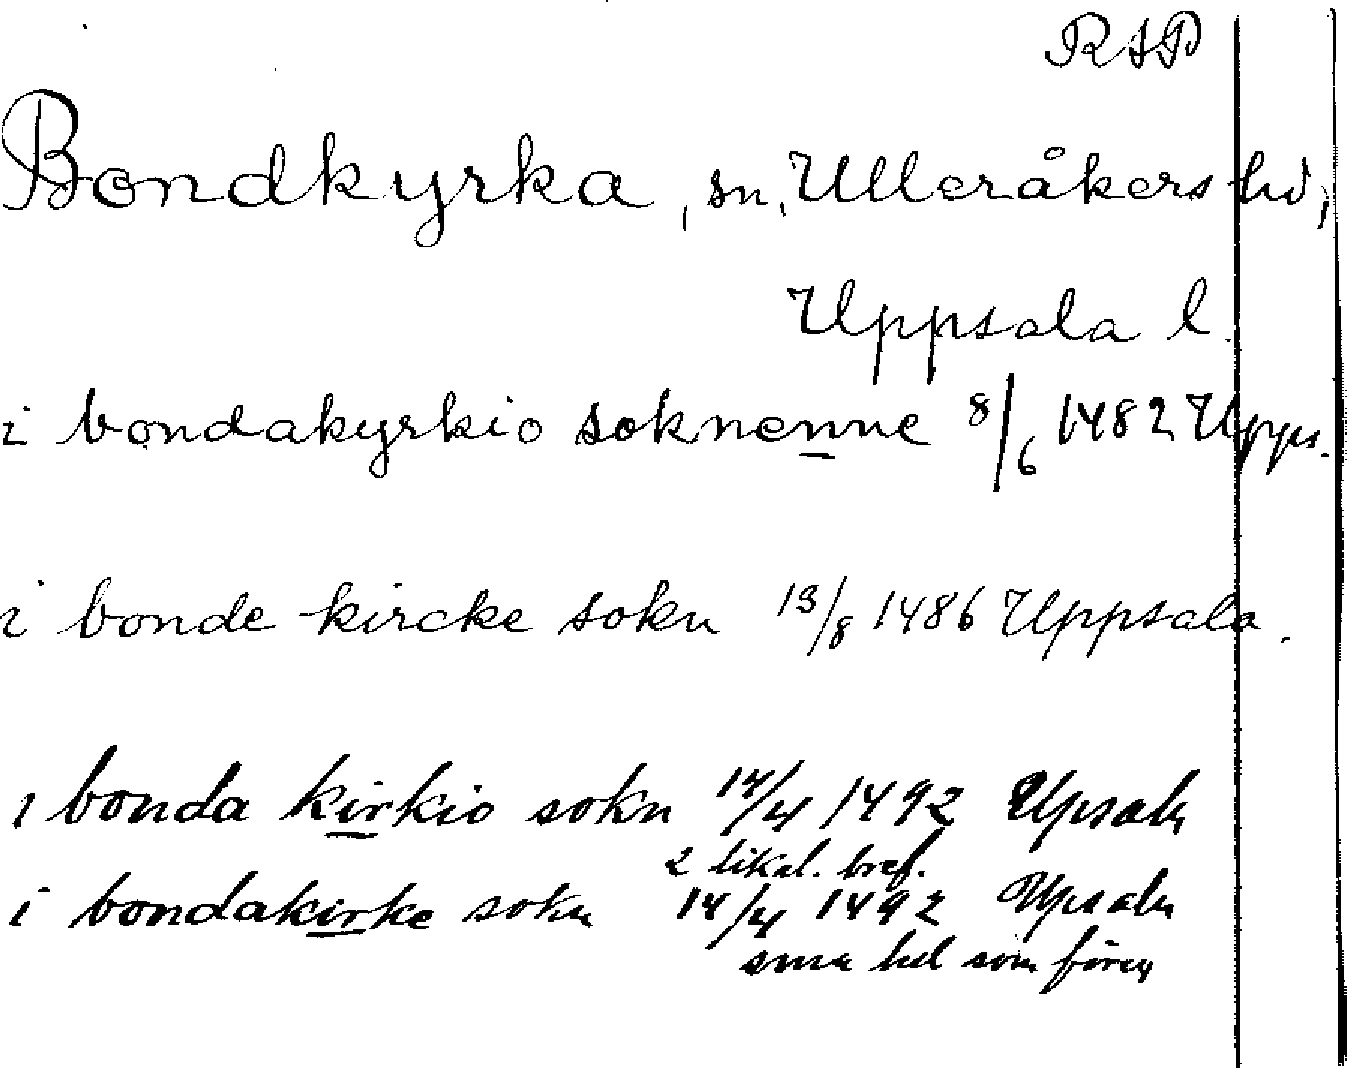 RAP
Bondkyrka, sn, Ulleråkers hd,
Uppsala l.
i bondakyrkio soknenne 8/6 1482 Upps.
i bonde kircke sokn 13/8 1486 Uppsala.
i bonda kirkio sokn 14/4 1492 Upsala
2 likal. bref.
i bondakirke sokn 14/4 1492 Upsala
som föreg